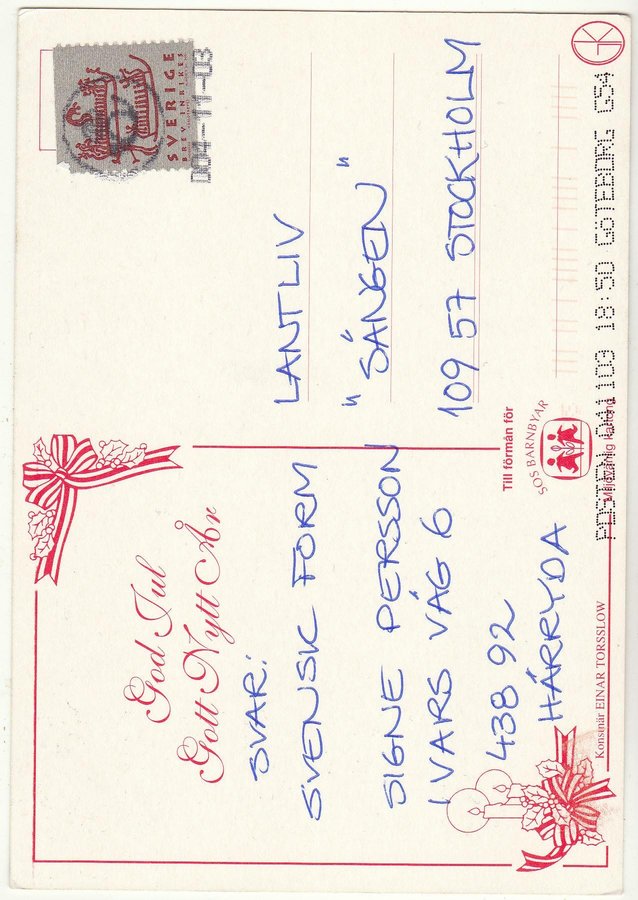 God Jul
Gott Nytt År
SVAR:
SVENSK FORM
SIGNE PERSSON
IVARS VÄG 6
438 92
HÄRRYDA
Konsnär EINAR TORSSLOW
SVERIGE
BREV INRIKES
D04-11-03
LANTLIV
"SÄNGEN"
109 57 STOCKHOLM
Till förmån för
SOS BARNBYAR
Miljövänlig kartong
POSTEN 041103 18:50 GÖTEBORG G54